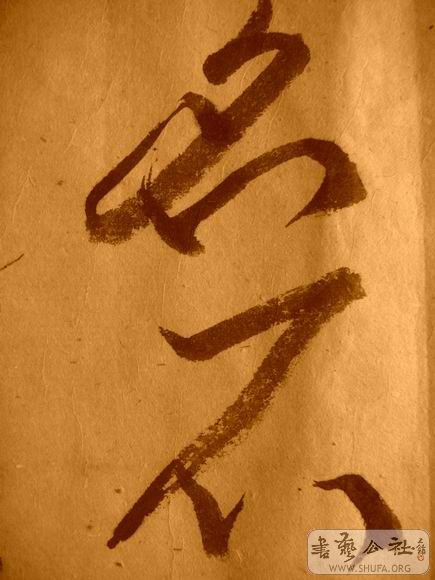 名
不
書藝公社
WWW.SHUFA.ORG